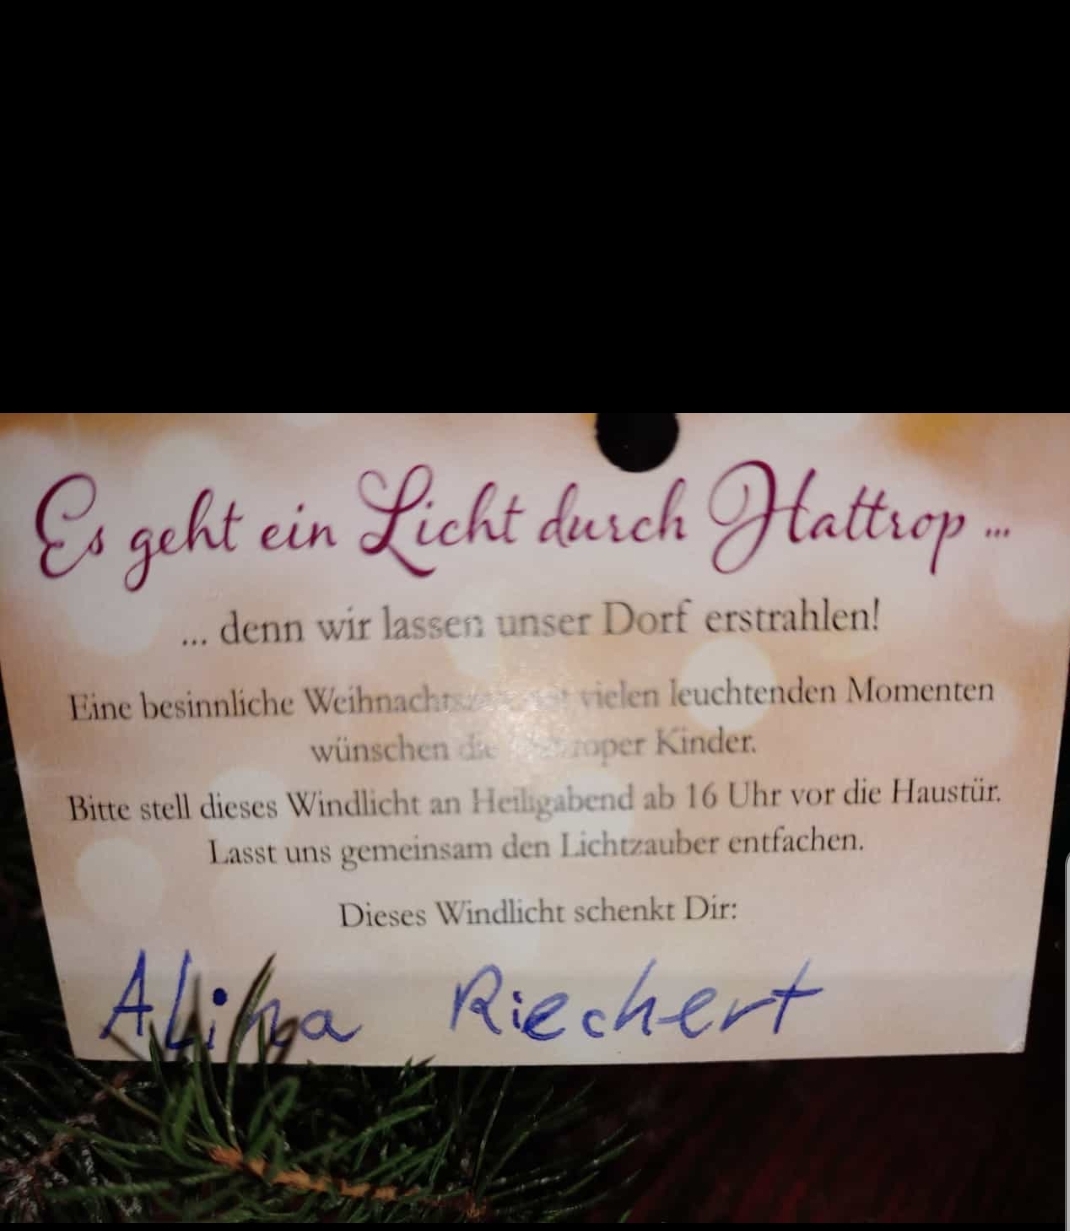 Es geht ein Licht durch Hattrop ...
... denn wir lassen unser Dorf erstrahlen!
Eine besinnliche vielen leuchtenden Momenten
wünschen die Kinder.
Bitte stell dieses Windlicht an Heiligabend ab 16 Uhr vor die Haustür.
Lasst uns gemeinsam den Lichtzauber entfachen.
Dieses Windlicht schenkt Dir:
Alina Riechert